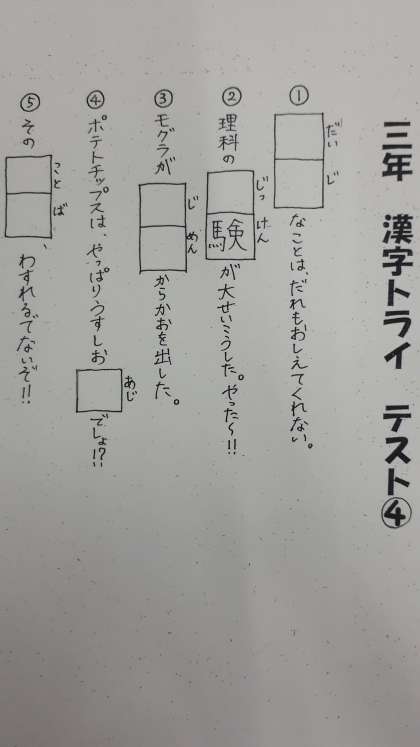 三年 漢字トライ テスト④
① だいじ なことは、だれもおしえてくれない。
② 理科の じっけん 験 が大せいこうした。やった〜!!
③ モグラが じめん からかおを出した。
④ ポテトチップスは、やっぱりうすしお あじ でしょ!?
⑤ その ことば 、わすれるでないぞ!!